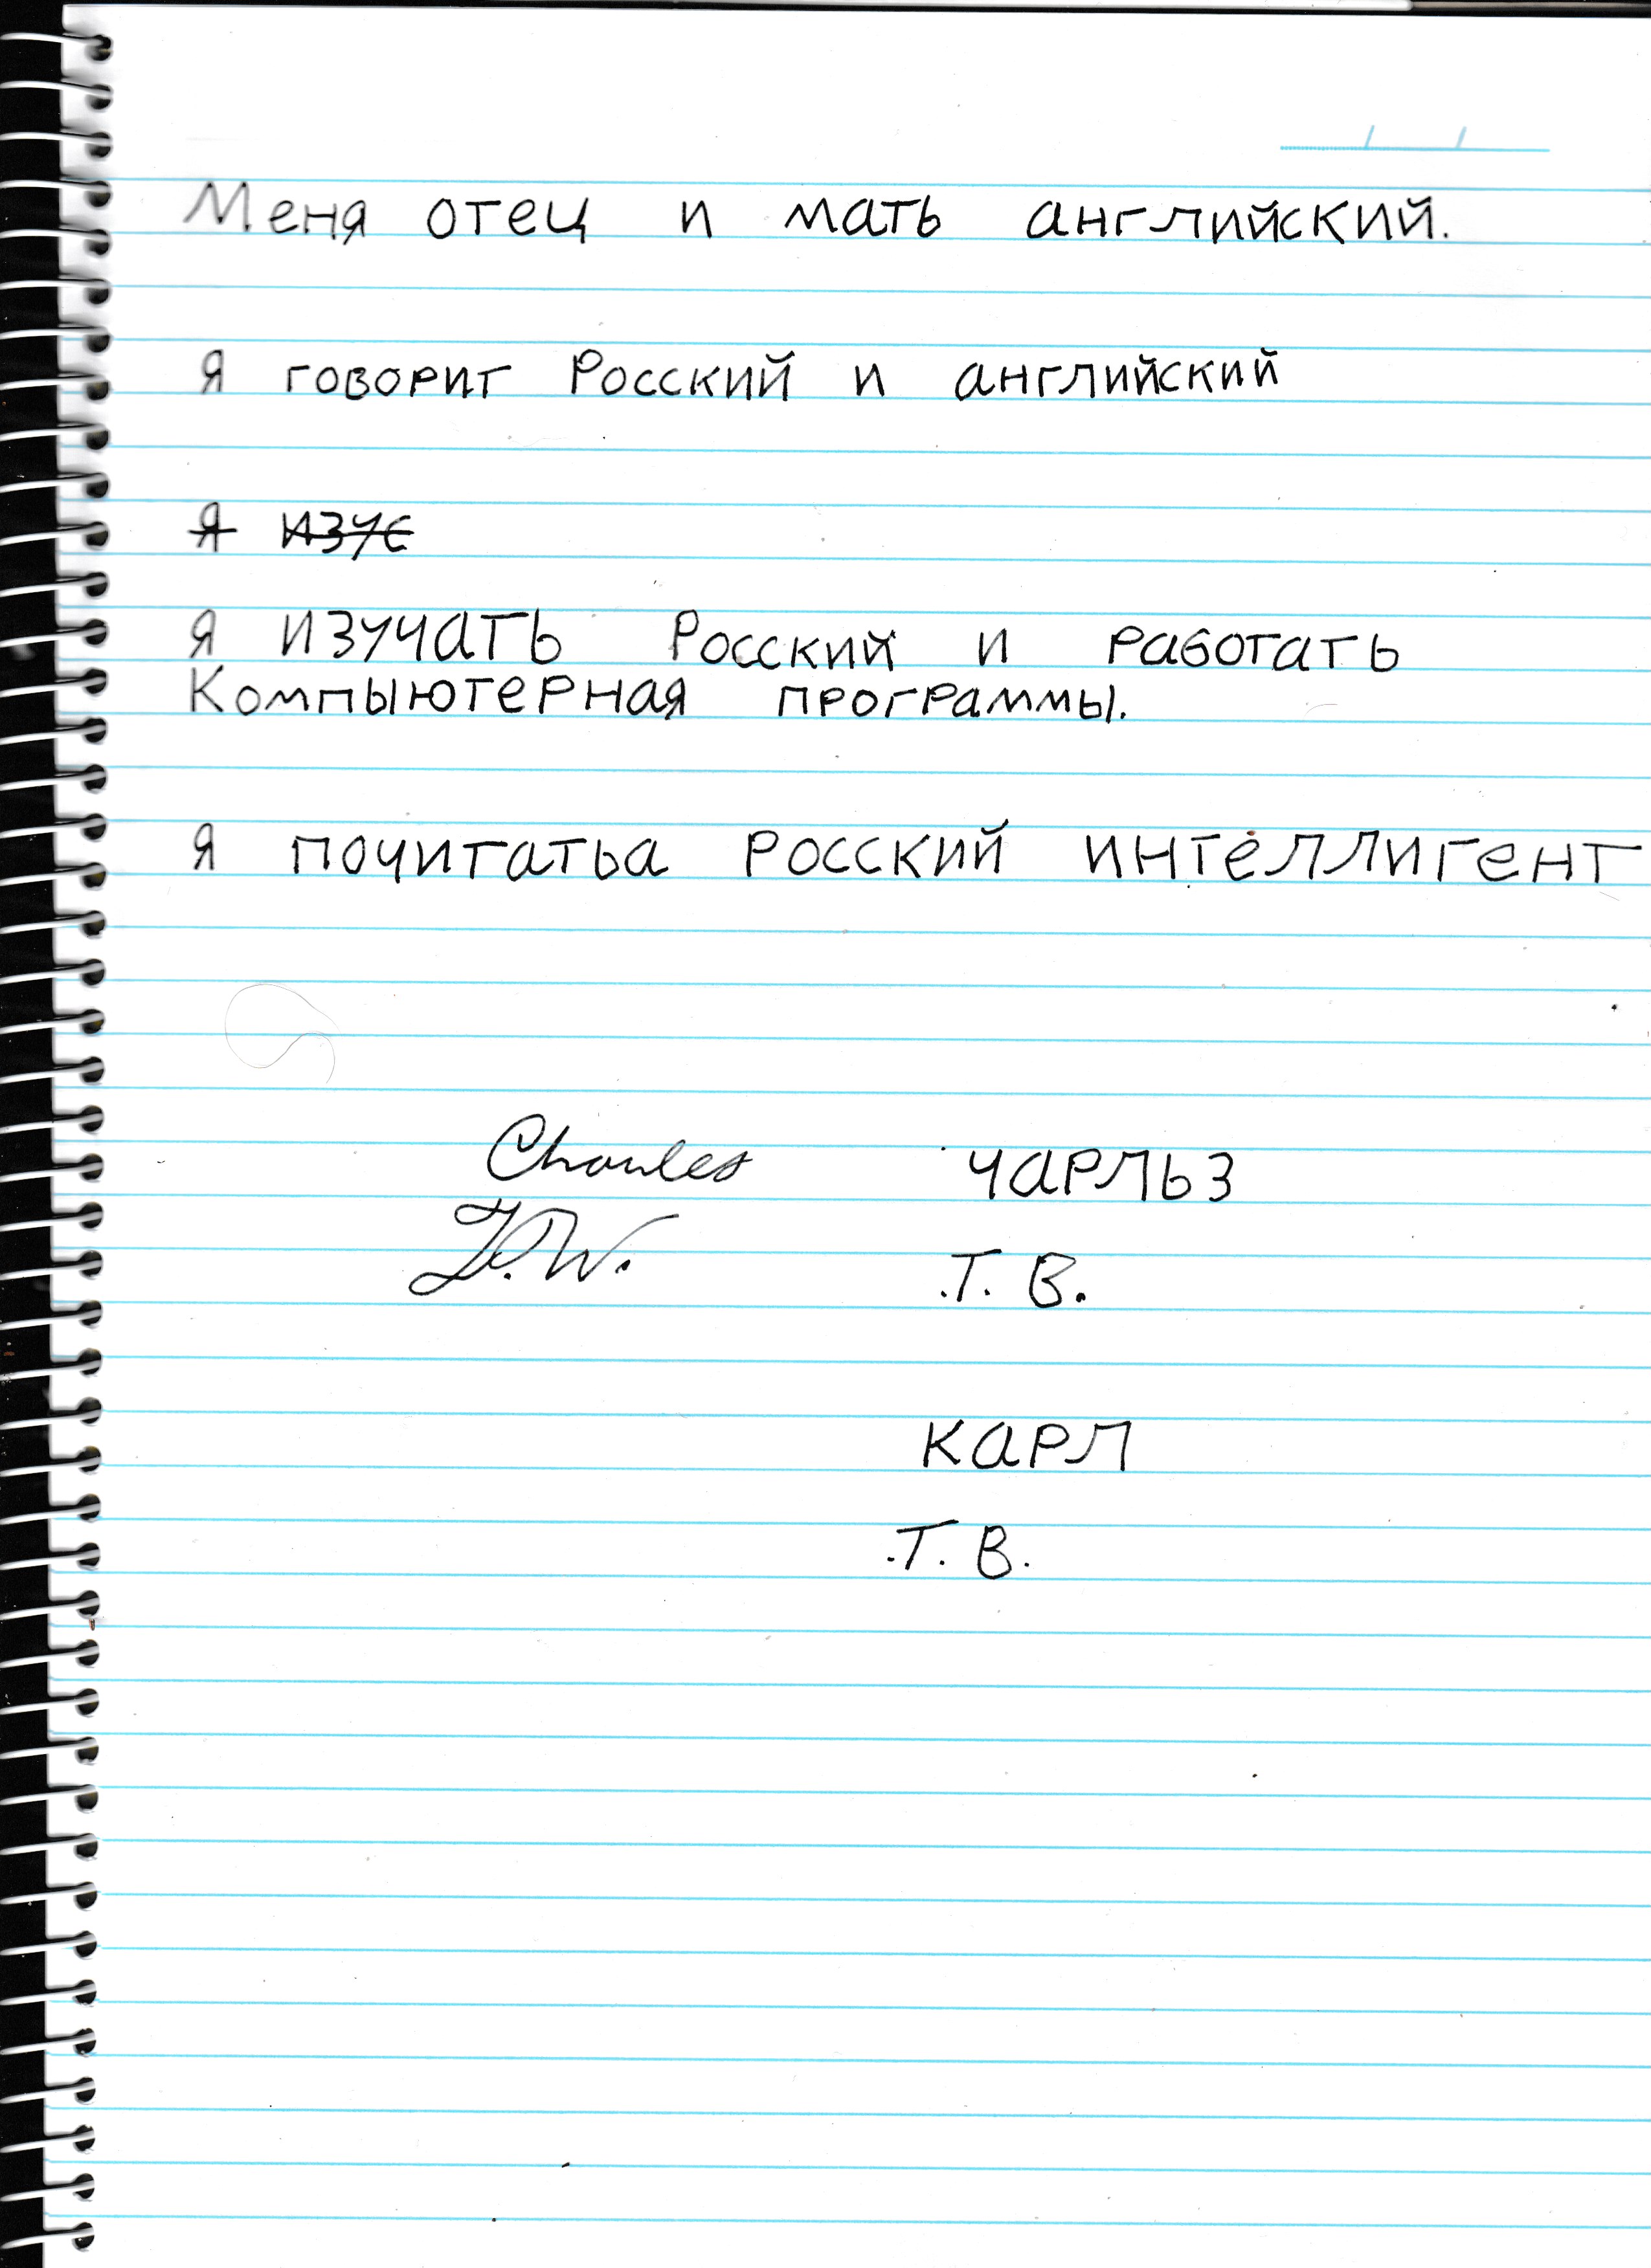 Меня отец и мать английский.
Я говорит Росский и английский
Я изує
Я изучать Росский и работать
Компыютерная программы.
Я почитатьа росский интеллигент
Charles чарльз
T.W. .Т. В.
карл
.Т. В.